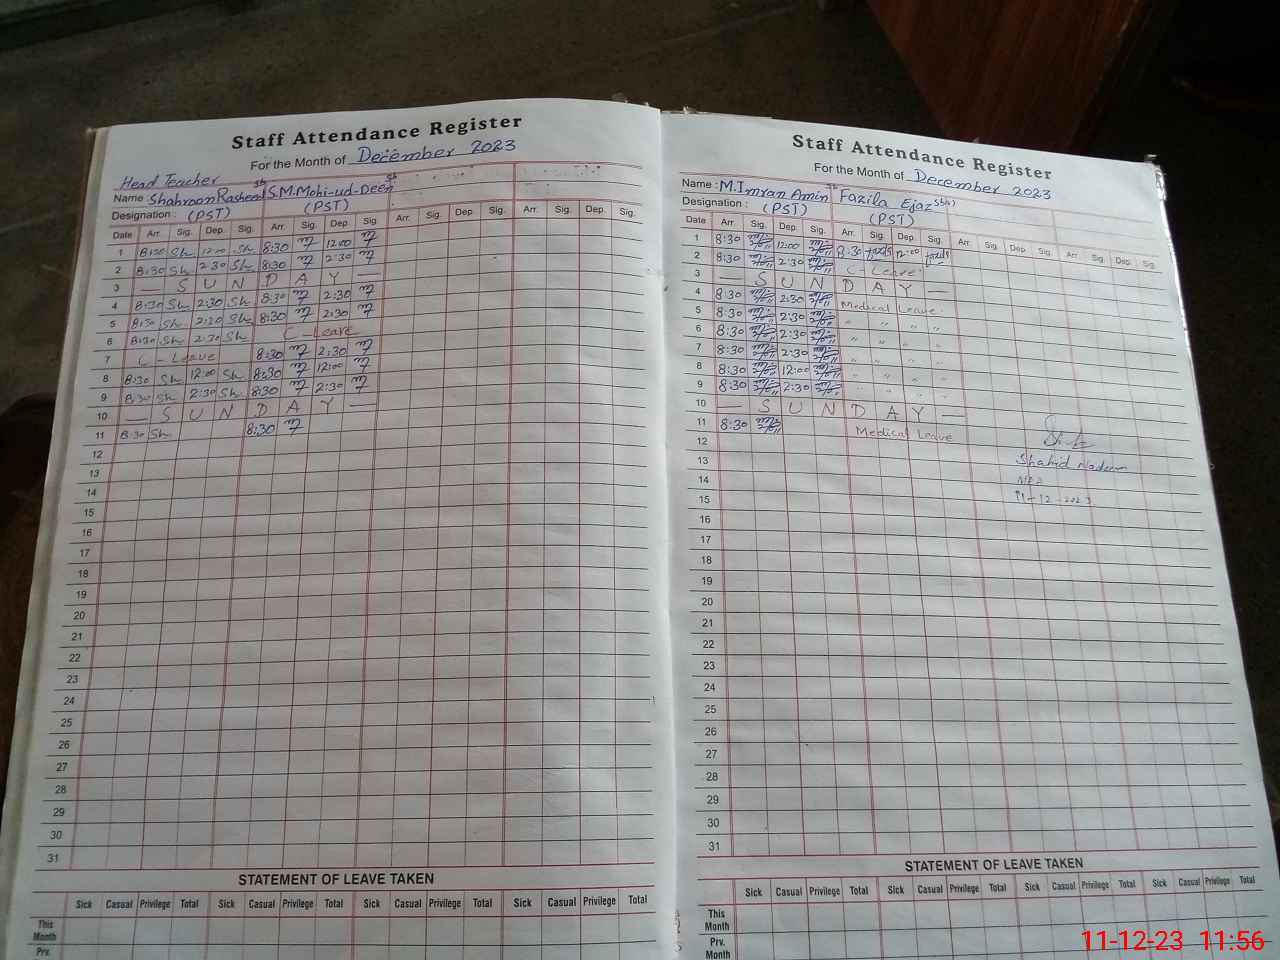 Staff Attendance Register
For the Month of December 2023
Head Teacher
Name Shahroon Rasheed sb S.M.Mohi-ud-Deen sb
Designation : (PST) (PST)
Date Arr. Sig. Dep. Sig. Arr. Sig. Dep. Sig. Arr. Sig. Dep. Sig. Arr. Sig. Dep. Sig.
1 8:30 Sh 12:00 Sh 8:30 12:00
2 8:30 Sh 2:30 Sh 8:30 2:30
3 — S U N D A Y —
4 8:30 Sh 2:30 Sh 8:30 2:30
5 8:30 Sh 2:30 Sh 8:30 2:30
6 8:30 Sh 2:30 Sh C-Leave
7 C-Leave 8:30 2:30
8 8:30 Sh 12:00 Sh 8:30 12:00
9 8:30 Sh 2:30 Sh 8:30 2:30
10 — S U N D A Y —
11 8:30 Sh 8:30
12
13
14
15
16
17
18
19
20
21
22
23
24
25
26
27
28
29
30
31
STATEMENT OF LEAVE TAKEN
Sick Casual Privilege Total Sick Casual Privilege Total Sick Casual Privilege Total Sick Casual Privilege Total
This Month
Prv.
Staff Attendance Register
For the Month of December 2023
Name : M.Imran Amin sb Fazila Ejaz
Designation : (PST) (PST)
Date Arr. Sig. Dep. Sig. Arr. Sig. Dep. Sig. Arr. Sig. Dep. Sig. Arr. Sig. Dep. Sig.
1 8:30 12:00 8:30 12:00
2 8:30 2:30 C-Leave
3 — S U N D A Y —
4 8:30 2:30 Medical Leave
5 8:30 2:30 " " " "
6 8:30 2:30 " " " "
7 8:30 2:30 " " " "
8 8:30 12:00 " " " "
9 8:30 2:30 " " " "
10 — S U N D A Y —
11 8:30 Medical Leave
12
13 Shahid Nadeem
14
15 11-12-2023
16
17
18
19
20
21
22
23
24
25
26
27
28
29
30
31
STATEMENT OF LEAVE TAKEN
Sick Casual Privilege Total Sick Casual Privilege Total Sick Casual Privilege Total Sick Casual Privilege Total
This Month
Prv. Month
11-12-23 11:56